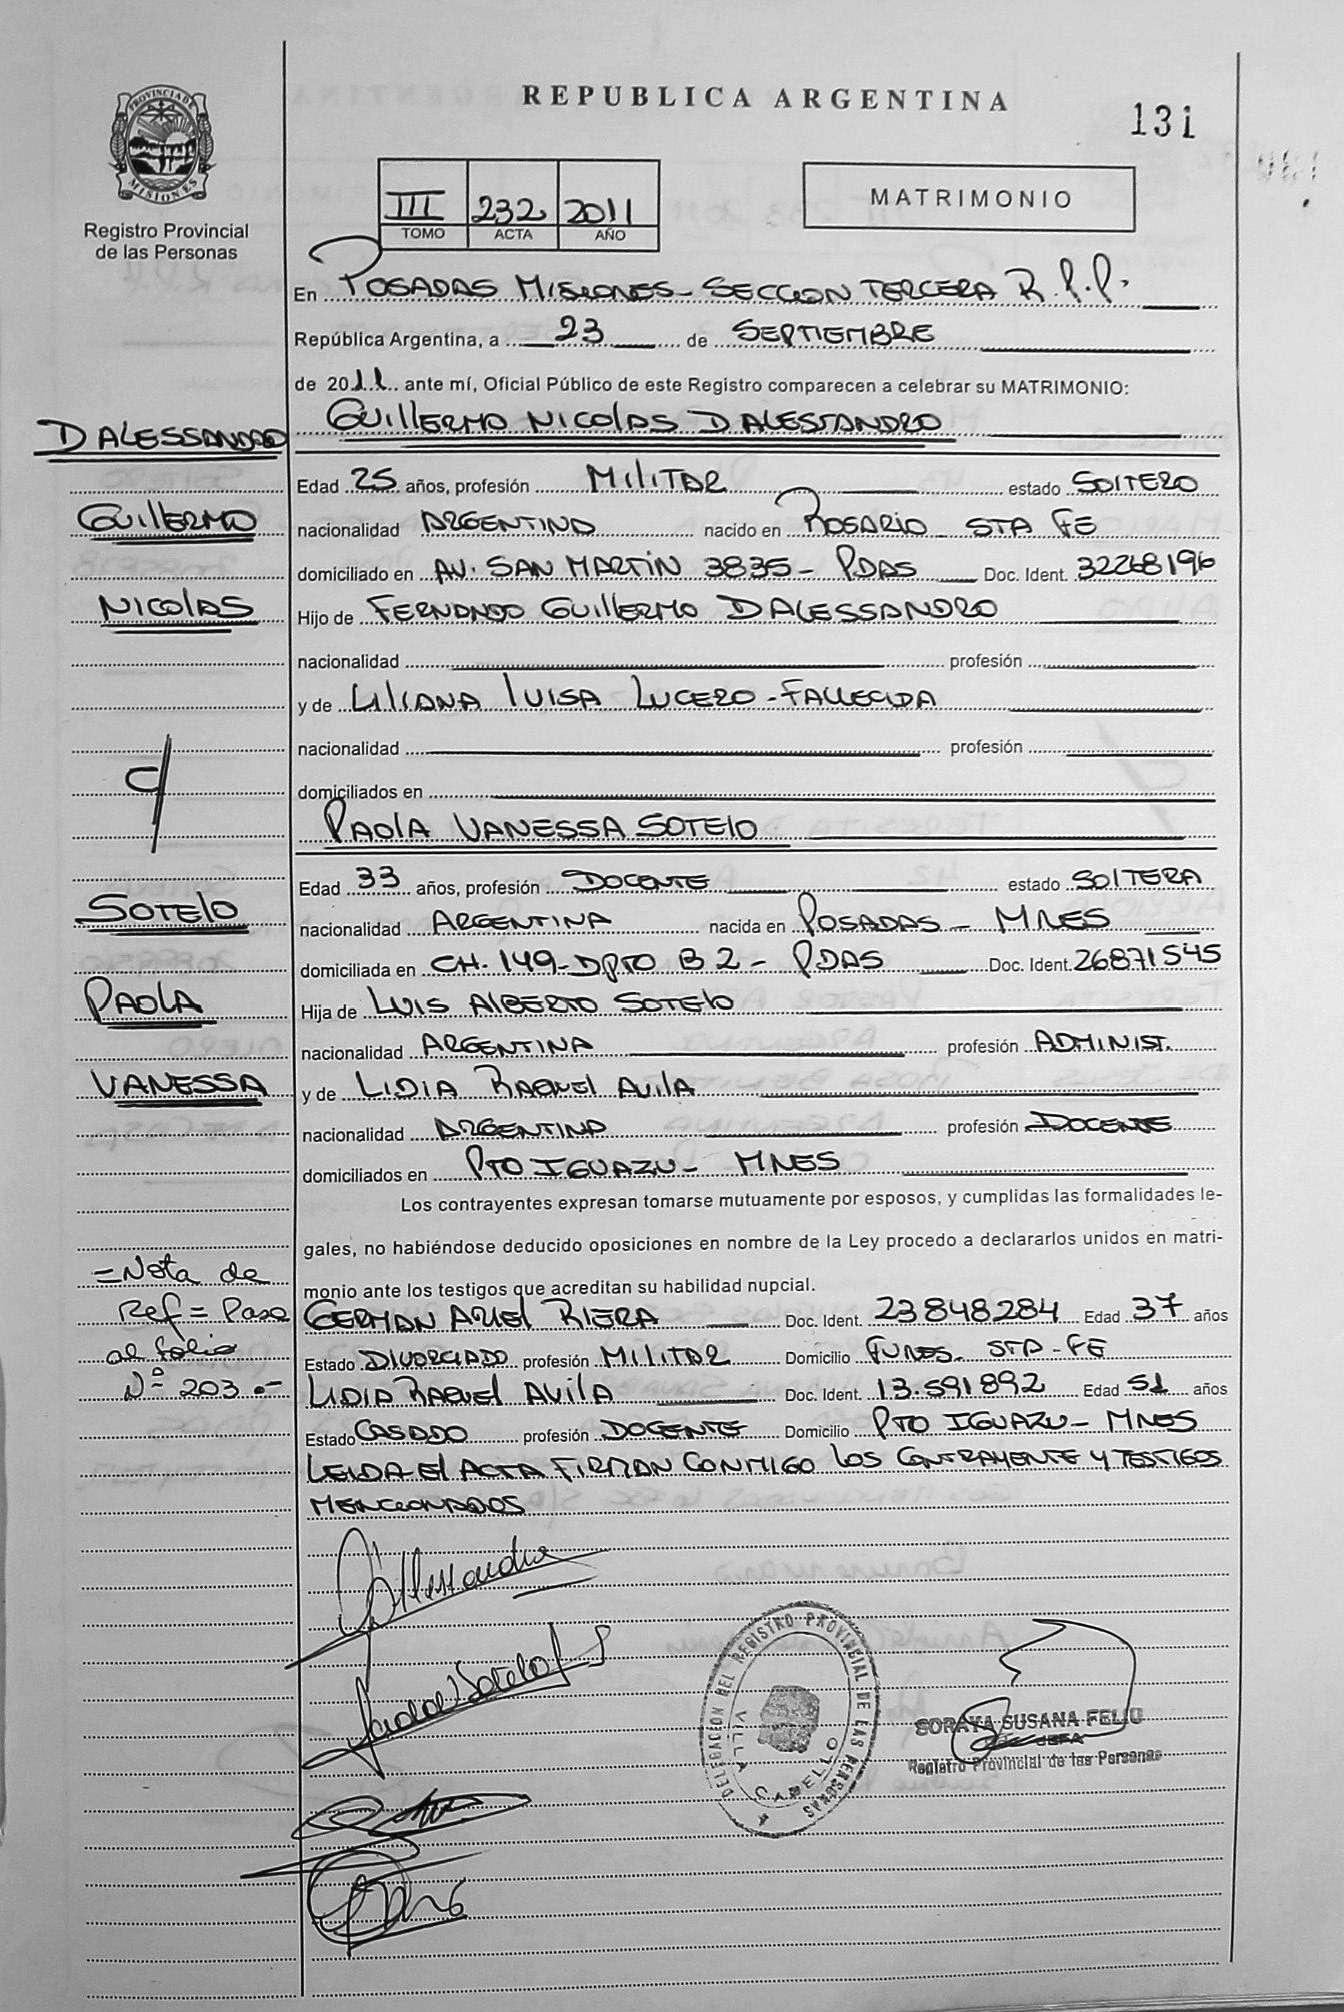 REPUBLICA ARGENTINA
131
PROVINCIA DE
MISIONES
Registro Provincial
de las Personas
III 232 2011
TOMO ACTA AÑO
MATRIMONIO
En POSADAS MISIONES - SECCION TERCERA R.P.P.
República Argentina, a 23 de SEPTIEMBRE
de 2011 ante mí, Oficial Público de este Registro comparecen a celebrar su MATRIMONIO:
D ALESSANDRO
GUILLERMO NICOLAS D ALESSANDRO
Edad 25 años, profesión MILITAR estado SOLTERO
GUILLERMO
nacionalidad ARGENTINO nacido en ROSARIO STA FE
domiciliado en AV. SAN MARTIN 3835 - PDAS Doc. Ident. 32268196
NICOLAS
Hijo de FERNANDO GUILLERMO D ALESSANDRO
nacionalidad profesión
y de LILIANA LUISA LUCERO - FALLECIDA
nacionalidad profesión
C/
domiciliados en
PAOLA VANESSA SOTELO
Edad 33 años, profesión DOCENTE estado SOLTERA
SOTELO
nacionalidad ARGENTINA nacida en POSADAS - MNES
domiciliada en CH. 149 - DPTO B 2 - PDAS Doc. Ident. 26871545
PAOLA
Hija de LUIS ALBERTO SOTELO
nacionalidad ARGENTINA profesión ADMINIST.
VANESSA
y de LIDIA RAQUEL AVILA
nacionalidad ARGENTINA profesión DOCENTE
domiciliados en PTO IGUAZU - MNES
Los contrayentes expresan tomarse mutuamente por esposos, y cumplidas las formalidades le-
gales, no habiéndose deducido oposiciones en nombre de la Ley procedo a declararlos unidos en matri-
monio ante los testigos que acreditan su habilidad nupcial.
= Nota de
Ref = Pase
al folio
Nº 203.-
GERMAN ARIEL RIERA Doc. Ident. 23848284 Edad 37 años
Estado DIVORCIADO profesión MILITAR Domicilio FUNES - STA - FE
LIDIA RAQUEL AVILA Doc. Ident. 13.591892 Edad 51 años
Estado CASADO profesión DOCENTE Domicilio PTO IGUAZU - MNES
LEIDA El ACTA FIRMAN CONMIGO LOS CONTRAYENTE Y TESTIGOS
MENCIONADOS
DELEGACION DEL REGISTRO PROVINCIAL DE LAS PERSONAS
VILLA CABELLO
SORAYA SUSANA FELIU
JEFA
Registro Provincial de las Personas